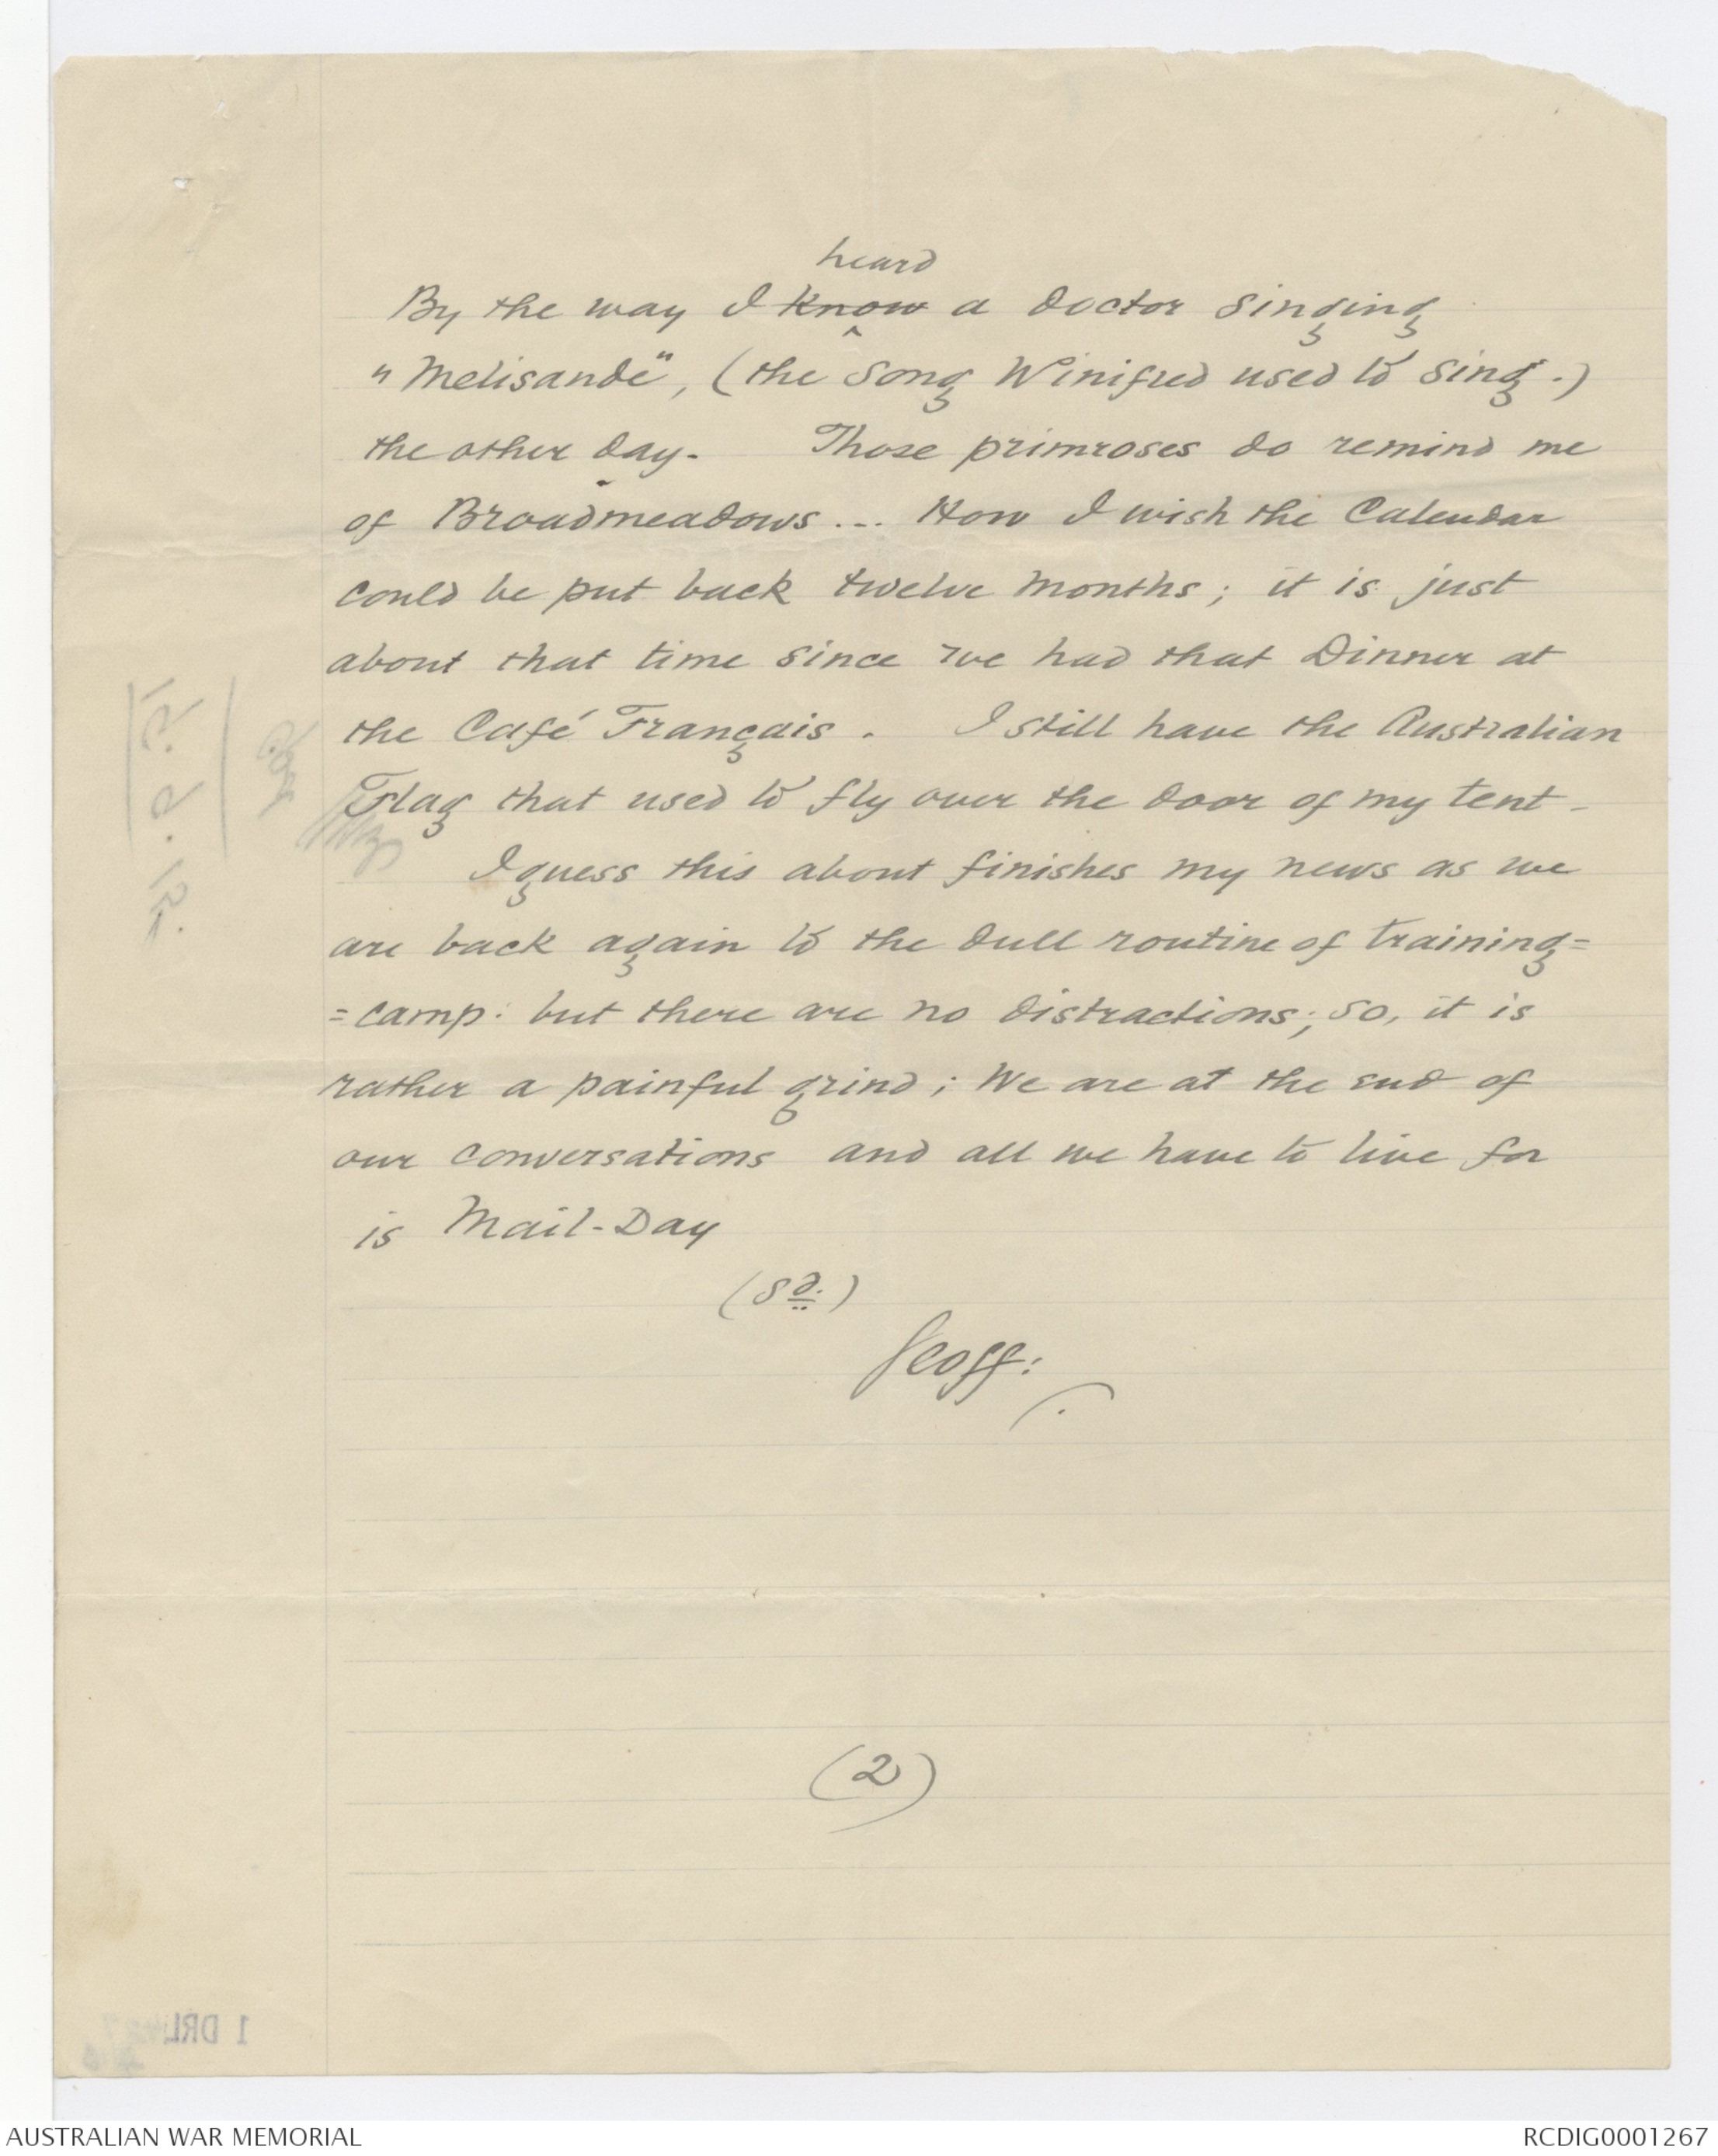 heard
By the way I know a doctor singing
"Melisande", (the song Winifred used to sing.)
the other day. Those primroses do remind me
of Broadmeadows... How I wish the Calendar
could be put back twelve months; it is just
about that time since we had that Dinner at
the Café Français. I still have the Australian
Flag that used to fly over the door of my tent.
I guess this about finishes my news as we
are back again to the dull routine of training=
=camp: but there are no distractions; so, it is
rather a painful grind; We are at the end of
our conversations and all we have to live for
is Mail-Day
(Sd.)
Geoff:
(2)
1 DRL
AUSTRALIAN WAR MEMORIAL
RCDIG0001267